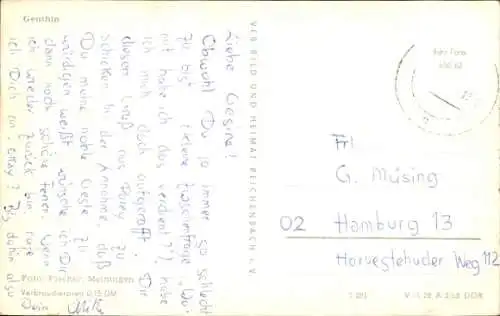 Genthin
Liebe Gesine!
Obwohl Du so immer so schlecht
zu bist (kleine Zwischenfrage "Wo-
mit habe ich das verdient?"), habe
ich mich doch aufgerafft Dir
diesen Gruß aus Parey zu
schicken. In der Annahme, daß
Du meine noble Geste zu
würdigen weißt, wünsche ich Dir
dann noch schöne Ferien. Wenn
ich wieder zurück bin rufe
ich Dich an. Okay? Bis dahin also
Dein
Foto: Fischer, Meiningen
Verbraucherpreis 0,15 DM
VEB BILD UND HEIMAT REICHENBACH i. V.
Frl
G. Müsing
02 Hamburg 13
Harvestehuder Weg 112
DDR